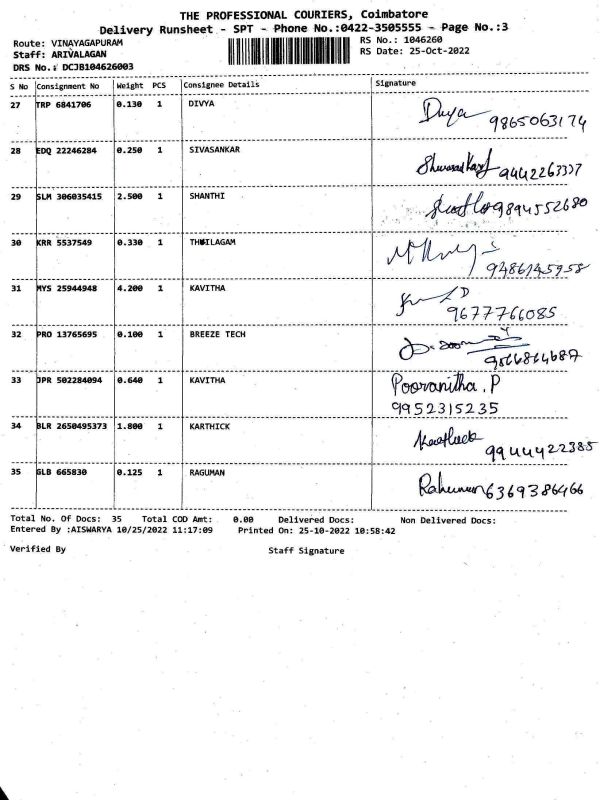 THE PROFESSIONAL COURIERS, Coimbatore
Delivery Runsheet - SPT - Phone No.:0422-3505555 - Page No.:3
Route: VINAYAGAPURAM RS No.: 1046260
Staff: ARIVALAGAN RS Date: 25-Oct-2022
DRS No.: DCJB104626003
S No Consignment No Weight PCS Consignee Details Signature
27 TRP 6841706 0.130 1 DIVYA Divya 9865063174
28 EDQ 22246284 0.250 1 SIVASANKAR 9442263337
29 SLM 306035415 2.500 1 SHANTHI 9894552680
30 KRR 5537549 0.330 1 THUILAGAM 9486145958
31 MYS 25944948 4.200 1 KAVITHA 9677766085
32 PRO 13765695 0.100 1 BREEZE TECH
33 JPR 502284094 0.640 1 KAVITHA Pooranitha.P
9952315235
34 BLR 2650495373 1.800 1 KARTHICK 9944422385
35 GLB 665830 0.125 1 RAGUMAN 6369386466
Total No. Of Docs: 35 Total COD Amt: 0.00 Delivered Docs: Non Delivered Docs:
Entered By :AISWARYA 10/25/2022 11:17:09 Printed On: 25-10-2022 10:58:42
Verified By Staff Signature